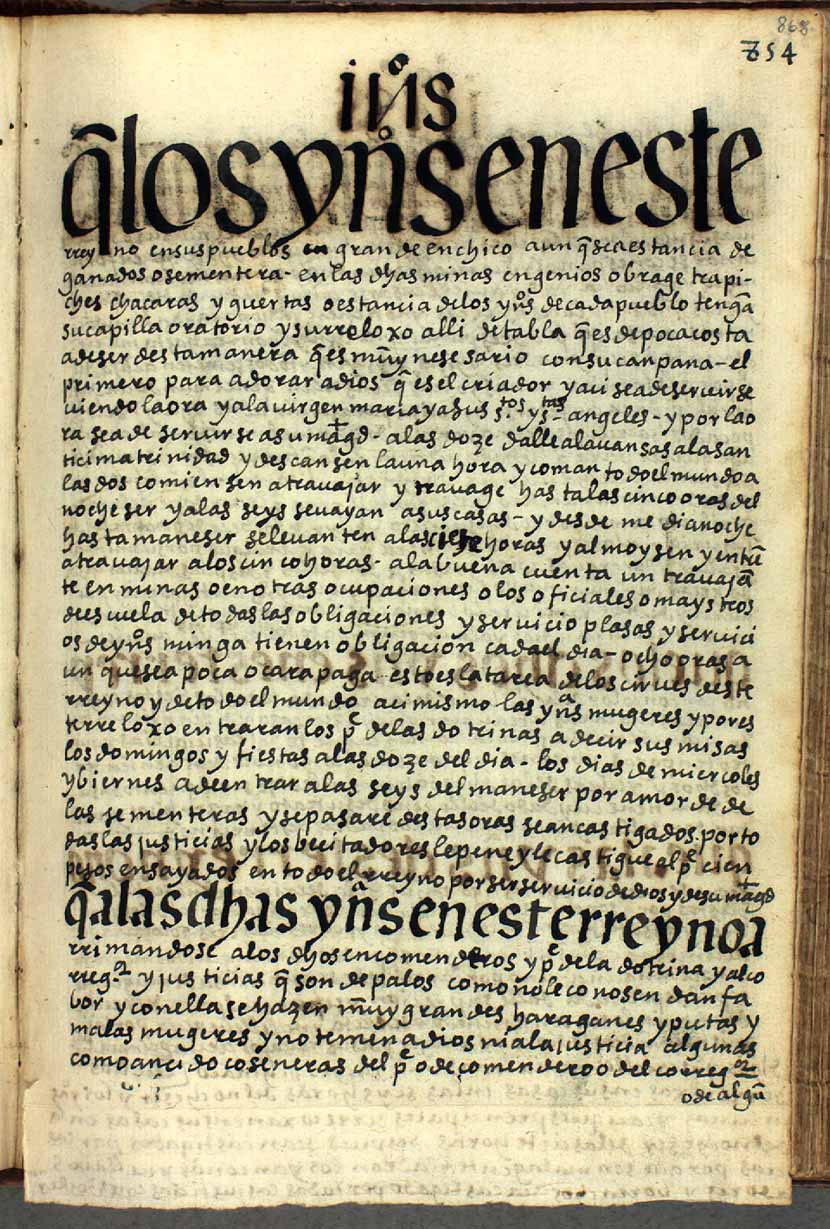 868
754
iin̊s
q̃ los yn̊s en este
rreyno en sus pueblos en grande en chico aunq̃ sea estancia de
ganados o sementera - en las dhas minas engenios obrage trapi-
ches chacaras y guertas o estancia de los yn̊s de cada pueblo tenga
su capilla oratorio y su rreloxo alli de tabla q̃ es de poca costa
a de ser desta manera q̃ es muy nesesario con su canpana - el
primero para adorar a dios q̃ es el criador y aci se a de servirse
uiendo la ora y a la uirgen maria y a sus s.tos y s.tas angeles - y por la o
ra sea de servirse a su mag.d - a las doze dalle alauansas a la san
ticima trinidad y descansen la una hora y coman todo el mundo a
las dos comiensen a trauajar y trauage hasta las cinco oras del
nocheser y a las seys se uayan a sus casas - y desde media noche
hasta maneser se leuanten a las ciete horas y almoysen y entrē
a trauajar a los cinco horas - a la buena cuenta un trauajā
te en minas o en otras ocupaciones o los oficiales o maystros
de escuela de todas las obligaciones y seruicio plasas y seruici
os de yn̊s minga tienen obligacion cada el dia - ocho oras a
un que sea poca o cara paga esto es la tarea de los ciruis deste
rreyno y de todo el mundo aci mismo - las yn̄s mugeres y por es
te rreloxo entraran los p.e de las dotrinas a decir sus misas
los domingos y fiestas a las doze del dia - los dias de miercoles
y biernes a de entrar a las seys del maneser por amor de de
las sementeras y se pasare destas oras sean castigados por to
das las justicias y los becitadores le pene y le castigue al p.e cien
pesos ensayados en todo el rreyno por ser seruicio de dios y de su mag.d
q̃ a las dhas yn̄s en este rreyno a
rrimandose a los dhos encomenderos y p.e de la dotrina y al co
rreg.or y justicias q̃ son de palos como no le conosen dan fa
bor y con ella se hazen muy grandes haraganes y putas y
malas mugeres y no temen a dios ni a la justicia algunas
como an cido coseneras del p.e o de comendero o del correg.or
o de algū